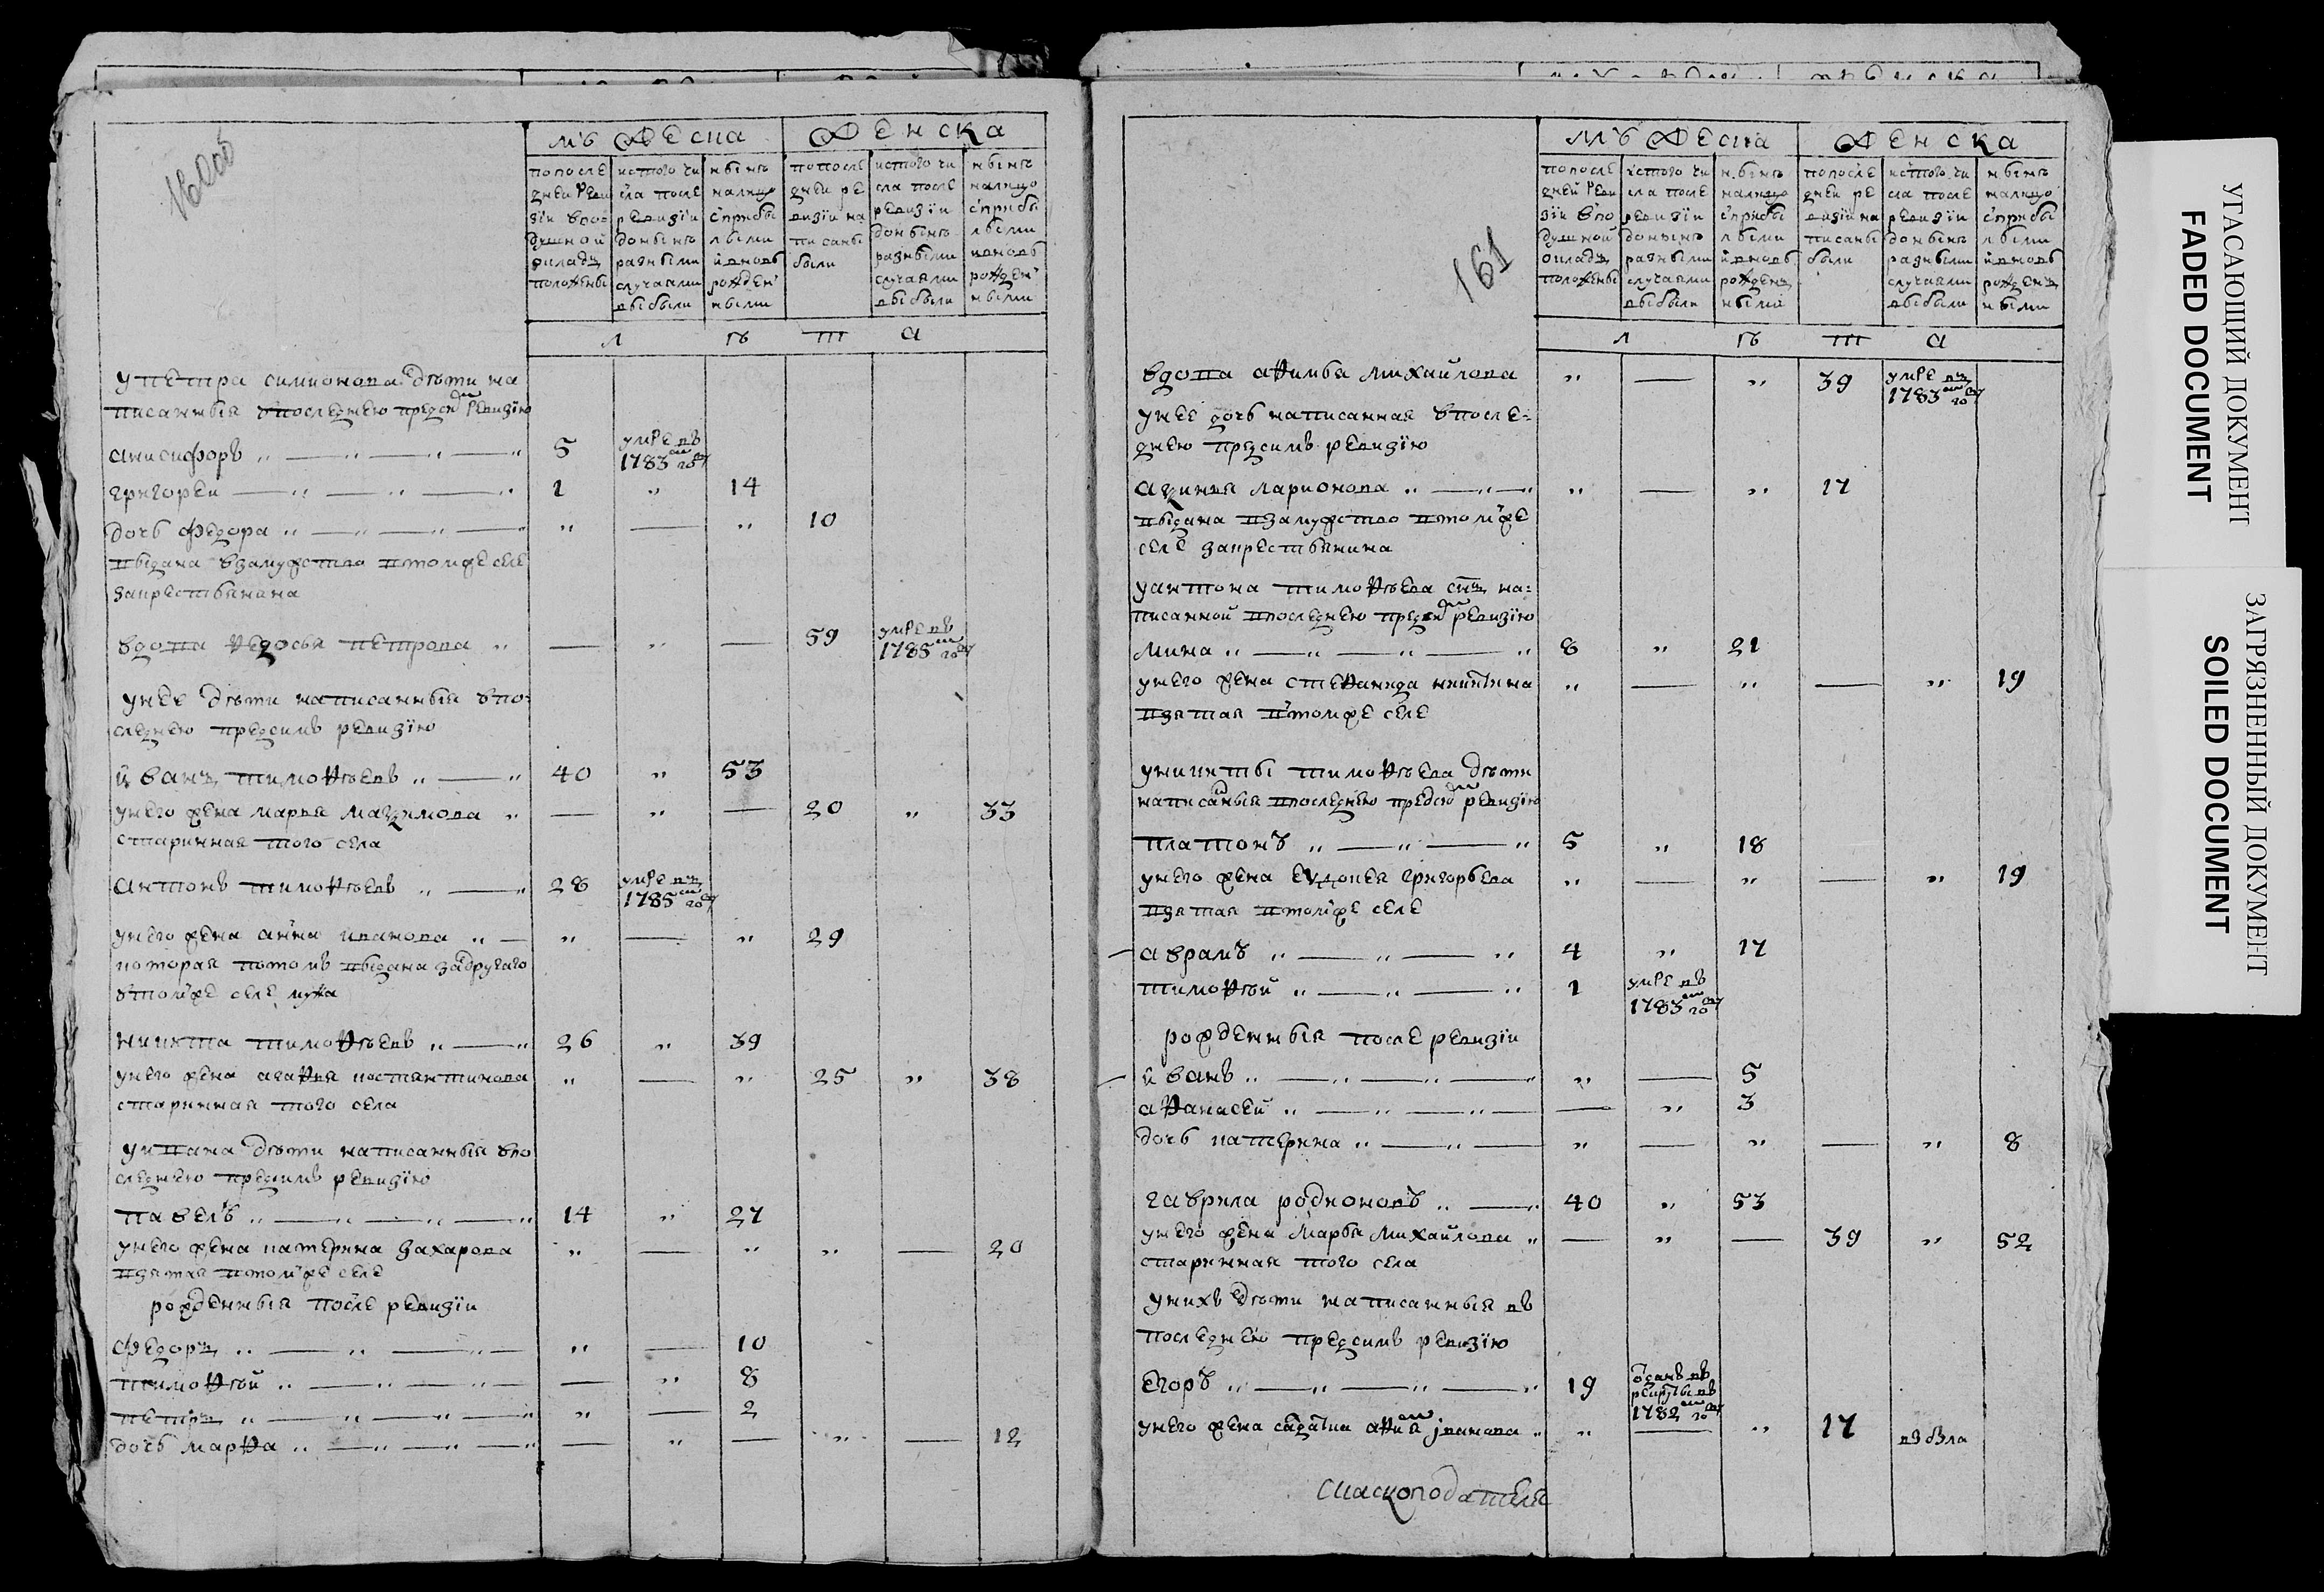 160об
мужеска женска
по после
дней реви
зіи в по
душной
окладъ
положены
ис того чи
сла после
ревизіи
до ныне
разными
случаями
выбыли
ныне
налицо
с прибы
лыми
и вновь
рожден
ными
по после
дней ре
визіи на
писаны
были
ис того чи
сла после
ревизіи
до ныне
разными
случаями
выбыли
ныне
налицо
с прибы
лыми
и вновь
рожден
ными
л ѣ т а
у петра симионова дѣти на
писанныя в последнею пред сим ревизiю
анисифоръ 5 умре въ 1783 м году
григореи 1 14
дочь федора 10
выдана в замужство в том же селе
за крестьянина
вдова ѳедосья петрова 59 умре въ 1785 м году
у нее дѣти написанныя в по
следнею пред симъ ревизiю
иванъ тимоѳѣевъ 40 53
у него жена марья мазимова 20 33
старинная того села
антонъ тимоѳѣевъ 28 умре въ 1785 м году
у него жена анна иванова 29
которая потомъ выдана за другаго
в том же селе мужа
никита тимоѳѣевъ 26 39
у него жена агаѳья костянтинова 25 38
старинная того села
у ивана дѣти написанныя в по
следнею пред симъ ревизiю
павелъ 14 27
у него жена катерина захарова 20
взятая в том же селе
рожденныя после ревизiи
федоръ 10
тимоѳѣй 8
петръ 2
дочь марѳа 12
161
мужеска женска
по после
дней реви
зіи в по
душной
окладъ
положены
ис того чи
сла после
ревизіи
до ныне
разными
случаями
выбыли
ныне
налицо
с прибы
лыми
и вновь
рожден
ными
по после
дней ре
визіи на
писаны
были
ис того чи
сла после
ревизіи
до ныне
разными
случаями
выбыли
ныне
налицо
с прибы
лыми
и вновь
рожден
ными
л ѣ т а
вдова акимья михайлова 39 умре въ 1783 м году
у нее дочь написанная в после
днею пред симъ ревизiю
аксинья ларионова 17
выдана в замужство в том же
селе за крестьянина
у антона тимоѳѣева снъ на
писанной в последнею пред сим ревизiю
мина 8 21
у него жена стеѳанида никитина 19
взятая в том же селе
у никиты тимоѳѣева дѣти
написанныя в последнею пред сим ревизiю
платонъ 5 18
у него жена еудокея григорьева 19
взятая в том же селе
аврамъ 4 17
тимоѳѣй 1 умре въ 1783 м году
рожденныя после ревизiи
иванъ 5
аѳанасей 3
дочь катерина 8
гаврила родионовъ 40 53
у него жена марья михайлова 39 52
старинная того села
у нихъ дѣти написанныя въ
последнею пред симъ ревизiю
егоръ 19 отданъ въ рекруты въ 1782 м году
у него жена солдатка иванова 17
УГАСАЮЩИЙ ДОКУМЕНТ
FADED DOCUMENT
ЗАГРЯЗНЕННЫЙ ДОКУМЕНТ
SOILED DOCUMENT